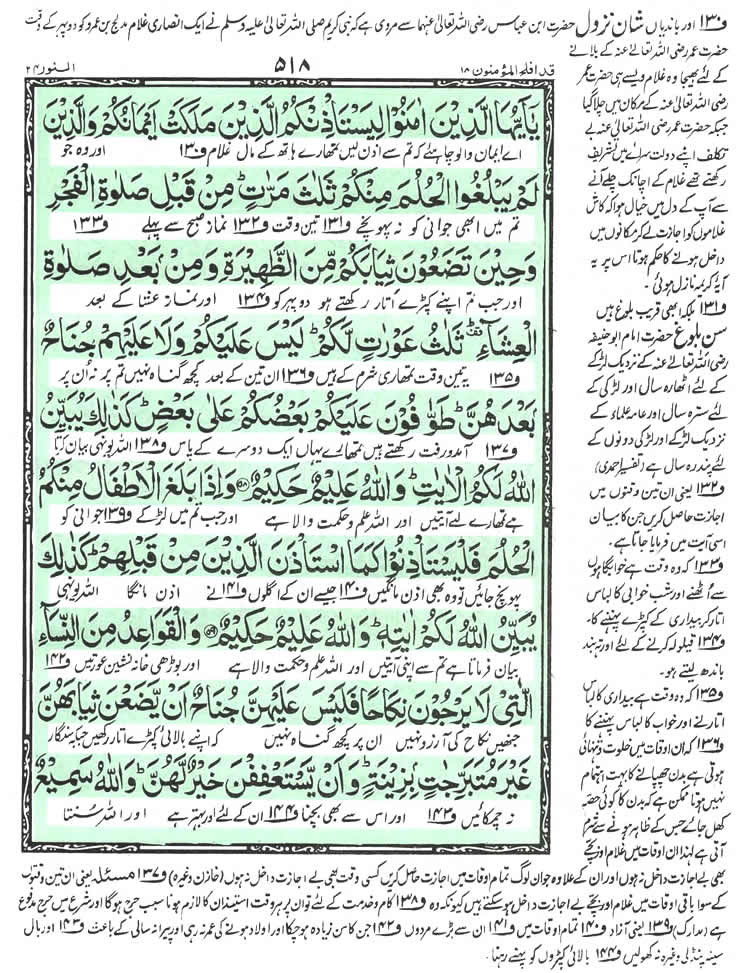 ف۱۳۰ اور باندیاں شان نزول حضرت ابن عباس رضی اللہ تعالیٰ عنہما سے مروی ہے کہ نبی کریم صلی اللہ تعالیٰ علیہ وسلم نے ایک انصاری غلام مدلج بن عمرو کو دوپہر کے وقت
حضرت عمر رضی اللہ تعالیٰ عنہ کے بلانے
النور ۲۴
۵۱۸
قد افلح المؤمنون ۱۸
کے لئے بھیجا وہ غلام ویسے ہی حضرت عمر
رضی اللہ تعالیٰ عنہ کے مکان میں چلا گیا
جبکہ حضرت عمر رضی اللہ تعالیٰ عنہ بے
تکلف اپنے دولت سرائے میں تشریف
رکھتے تھے غلام کے اچانک چلے آنے
سے آپ کے دل میں خیال ہوا کہ کاش
غلاموں کو اجازت لے کر مکانوں میں
داخل ہونے کا حکم ہوتا اس پر یہ
آیہ کریمہ نازل ہوئی۔
ف۱۳۱ بلکہ ابھی قریب بلوغ ہیں
سن بلوغ حضرت امام ابو حنیفہ
رضی اللہ تعالیٰ عنہ کے نزدیک لڑکے
کے لئے اٹھارہ سال اور لڑکی کے
لئے سترہ سال اور عامہ علماء کے
نزدیک لڑکے اور لڑکی دونوں کے
لئے پندرہ سال ہے (تفسیر احمدی)
ف۱۳۲ یعنی ان تین وقتوں میں
اجازت حاصل کریں جن کا بیان
اسی آیت میں فرمایا جاتا ہے۔
ف۱۳۳ کہ وہ وقت ہے خوابگاہوں
سے اُٹھنے اور شب خوابی کا لباس
اتار کر بیداری کے کپڑے پہننے کا۔
ف۱۳۴ قیلولہ کرنے کے لئے اور تہبند
باندھ لیتے ہو۔
ف۱۳۵ کہ وہ وقت ہے بیداری کا لباس
اتارنے اور خواب کا لباس پہننے کا
ف۱۳۶ کہ ان اوقات میں خلوت و تنہائی
ہوتی ہے بدن چھپانے کا بہت اہتمام
نہیں ہوتا ممکن ہے کہ بدن کا کوئی حصہ
کھل جائے جس کے ظاہر ہونے سے شرم
آتی ہے لہٰذا ان اوقات میں غلام اور بچے
يٰۤاَيُّهَا الَّذِيْنَ اٰمَنُوْا لِيَسْتَاْذِنْكُمُ الَّذِيْنَ مَلَكَتْ اَيْمَانُكُمْ وَالَّذِيْنَ
اے ایمان والو چاہئے کہ تم سے اذن لیں تمھارے ہاتھ کے مال غلام ف۱۳۰ اور وہ جو
لَمْ يَبْلُغُوا الْحُلُمَ مِنْكُمْ ثَلٰثَ مَرّٰتٍ ؕ مِنْ قَبْلِ صَلٰوةِ الْفَجْرِ
تم میں ابھی جوانی کو نہ پہونچے ف۱۳۱ تین وقت ف۱۳۲ نماز صبح سے پہلے ف۱۳۳
وَحِيْنَ تَضَعُوْنَ ثِيَابَكُمْ مِّنَ الظَّهِيْرَةِ وَمِنْۢ بَعْدِ صَلٰوةِ
اور جب تم اپنے کپڑے اُتار رکھتے ہو دوپہر کو ف۱۳۴ اور نماز عشا کے بعد
الْعِشَآءِ ؕ ثَلٰثُ عَوْرٰتٍ لَّكُمْ ؕ لَيْسَ عَلَيْكُمْ وَلَا عَلَيْهِمْ جُنَاحٌۢ
ف۱۳۵ یہ تین وقت تمھاری شرم کے ہیں ف۱۳۶ ان تین کے بعد کچھ گناہ نہیں تم پر نہ اُن پر
بَعْدَهُنَّ ؕ طَوّٰفُوْنَ عَلَيْكُمْ بَعْضُكُمْ عَلٰى بَعْضٍ ؕ كَذٰلِكَ يُبَيِّنُ
ف۱۳۷ آمدورفت رکھتے ہیں تمھارے یہاں ایک دوسرے کے پاس ف۱۳۸ اللہ یونہی بیان کرتا
اللّٰهُ لَكُمُ الْاٰيٰتِ ؕ وَاللّٰهُ عَلِيْمٌ حَكِيْمٌ ۵۸ وَاِذَا بَلَغَ الْاَطْفَالُ مِنْكُمُ
ہے تمھارے لئے آیتیں اور اللہ علم و حکمت والا ہے اور جب تم میں لڑکے ف۱۳۹ جوانی کو
الْحُلُمَ فَلْيَسْتَاْذِنُوْا كَمَا اسْتَاْذَنَ الَّذِيْنَ مِنْ قَبْلِهِمْ ؕ كَذٰلِكَ
پہونچ جائیں تو وہ بھی اذن مانگیں ف۱۴۰ جیسے ان کے اگلوں ف۱۴۱ نے اذن مانگا اللہ یونہی
يُبَيِّنُ اللّٰهُ لَكُمْ اٰيٰتِهٖ ؕ وَاللّٰهُ عَلِيْمٌ حَكِيْمٌ ۵۹ وَالْقَوَاعِدُ مِنَ النِّسَآءِ
بیان فرماتا ہے تم سے اپنی آیتیں اور اللہ علم و حکمت والا ہے اور بوڑھی خانہ نشین عورتیں ف۱۴۲
الّٰتِيْ لَا يَرْجُوْنَ نِكَاحًا فَلَيْسَ عَلَيْهِنَّ جُنَاحٌ اَنْ يَّضَعْنَ ثِيَابَهُنَّ
جنھیں نکاح کی آرزو نہیں ان پر کچھ گناہ نہیں کہ اپنے بالائی کپڑے اتار رکھیں جبکہ سنگار
غَيْرَ مُتَبَرِّجٰتٍۭ بِزِيْنَةٍ ؕ وَاَنْ يَّسْتَعْفِفْنَ خَيْرٌ لَّهُنَّ ؕ وَاللّٰهُ سَمِيْعٌ
نہ چمکائیں ف۱۴۳ اور اس سے بھی بچنا ف۱۴۴ ان کے لئے اور بہتر ہے اور اللہ سنتا
بھی بے اجازت داخل نہ ہوں اور ان کے علاوہ جوان لوگ تمام اوقات میں اجازت حاصل کریں کسی وقت بھی بے اجازت داخل نہ ہوں (خازن وغیرہ) ف۱۳۷ مسئلہ یعنی ان تین وقتوں
کے سوا باقی اوقات میں غلام اور بچے بے اجازت داخل ہو سکتے ہیں کیونکہ وہ ف۱۳۸ کام و خدمت کے لئے تو ان پر ہر وقت استیذان کا لازم ہونا سبب حرج ہوگا اور شرع میں حرج مدفوع
ہے (مدارک) ف۱۳۹ یعنی آزاد ف۱۴۰ تمام اوقات میں ف۱۴۱ ان سے بڑے مردوں ف۱۴۲ جن کا سن زیادہ ہو چکا اور اولاد ہونے کی عمر نہ رہی اور پیرانہ سالی کے باعث ف۱۴۳ اور بال
سینہ پنڈلی وغیرہ نہ کھولیں ف۱۴۴ بالائی کپڑوں کو پہنے رہنا۔